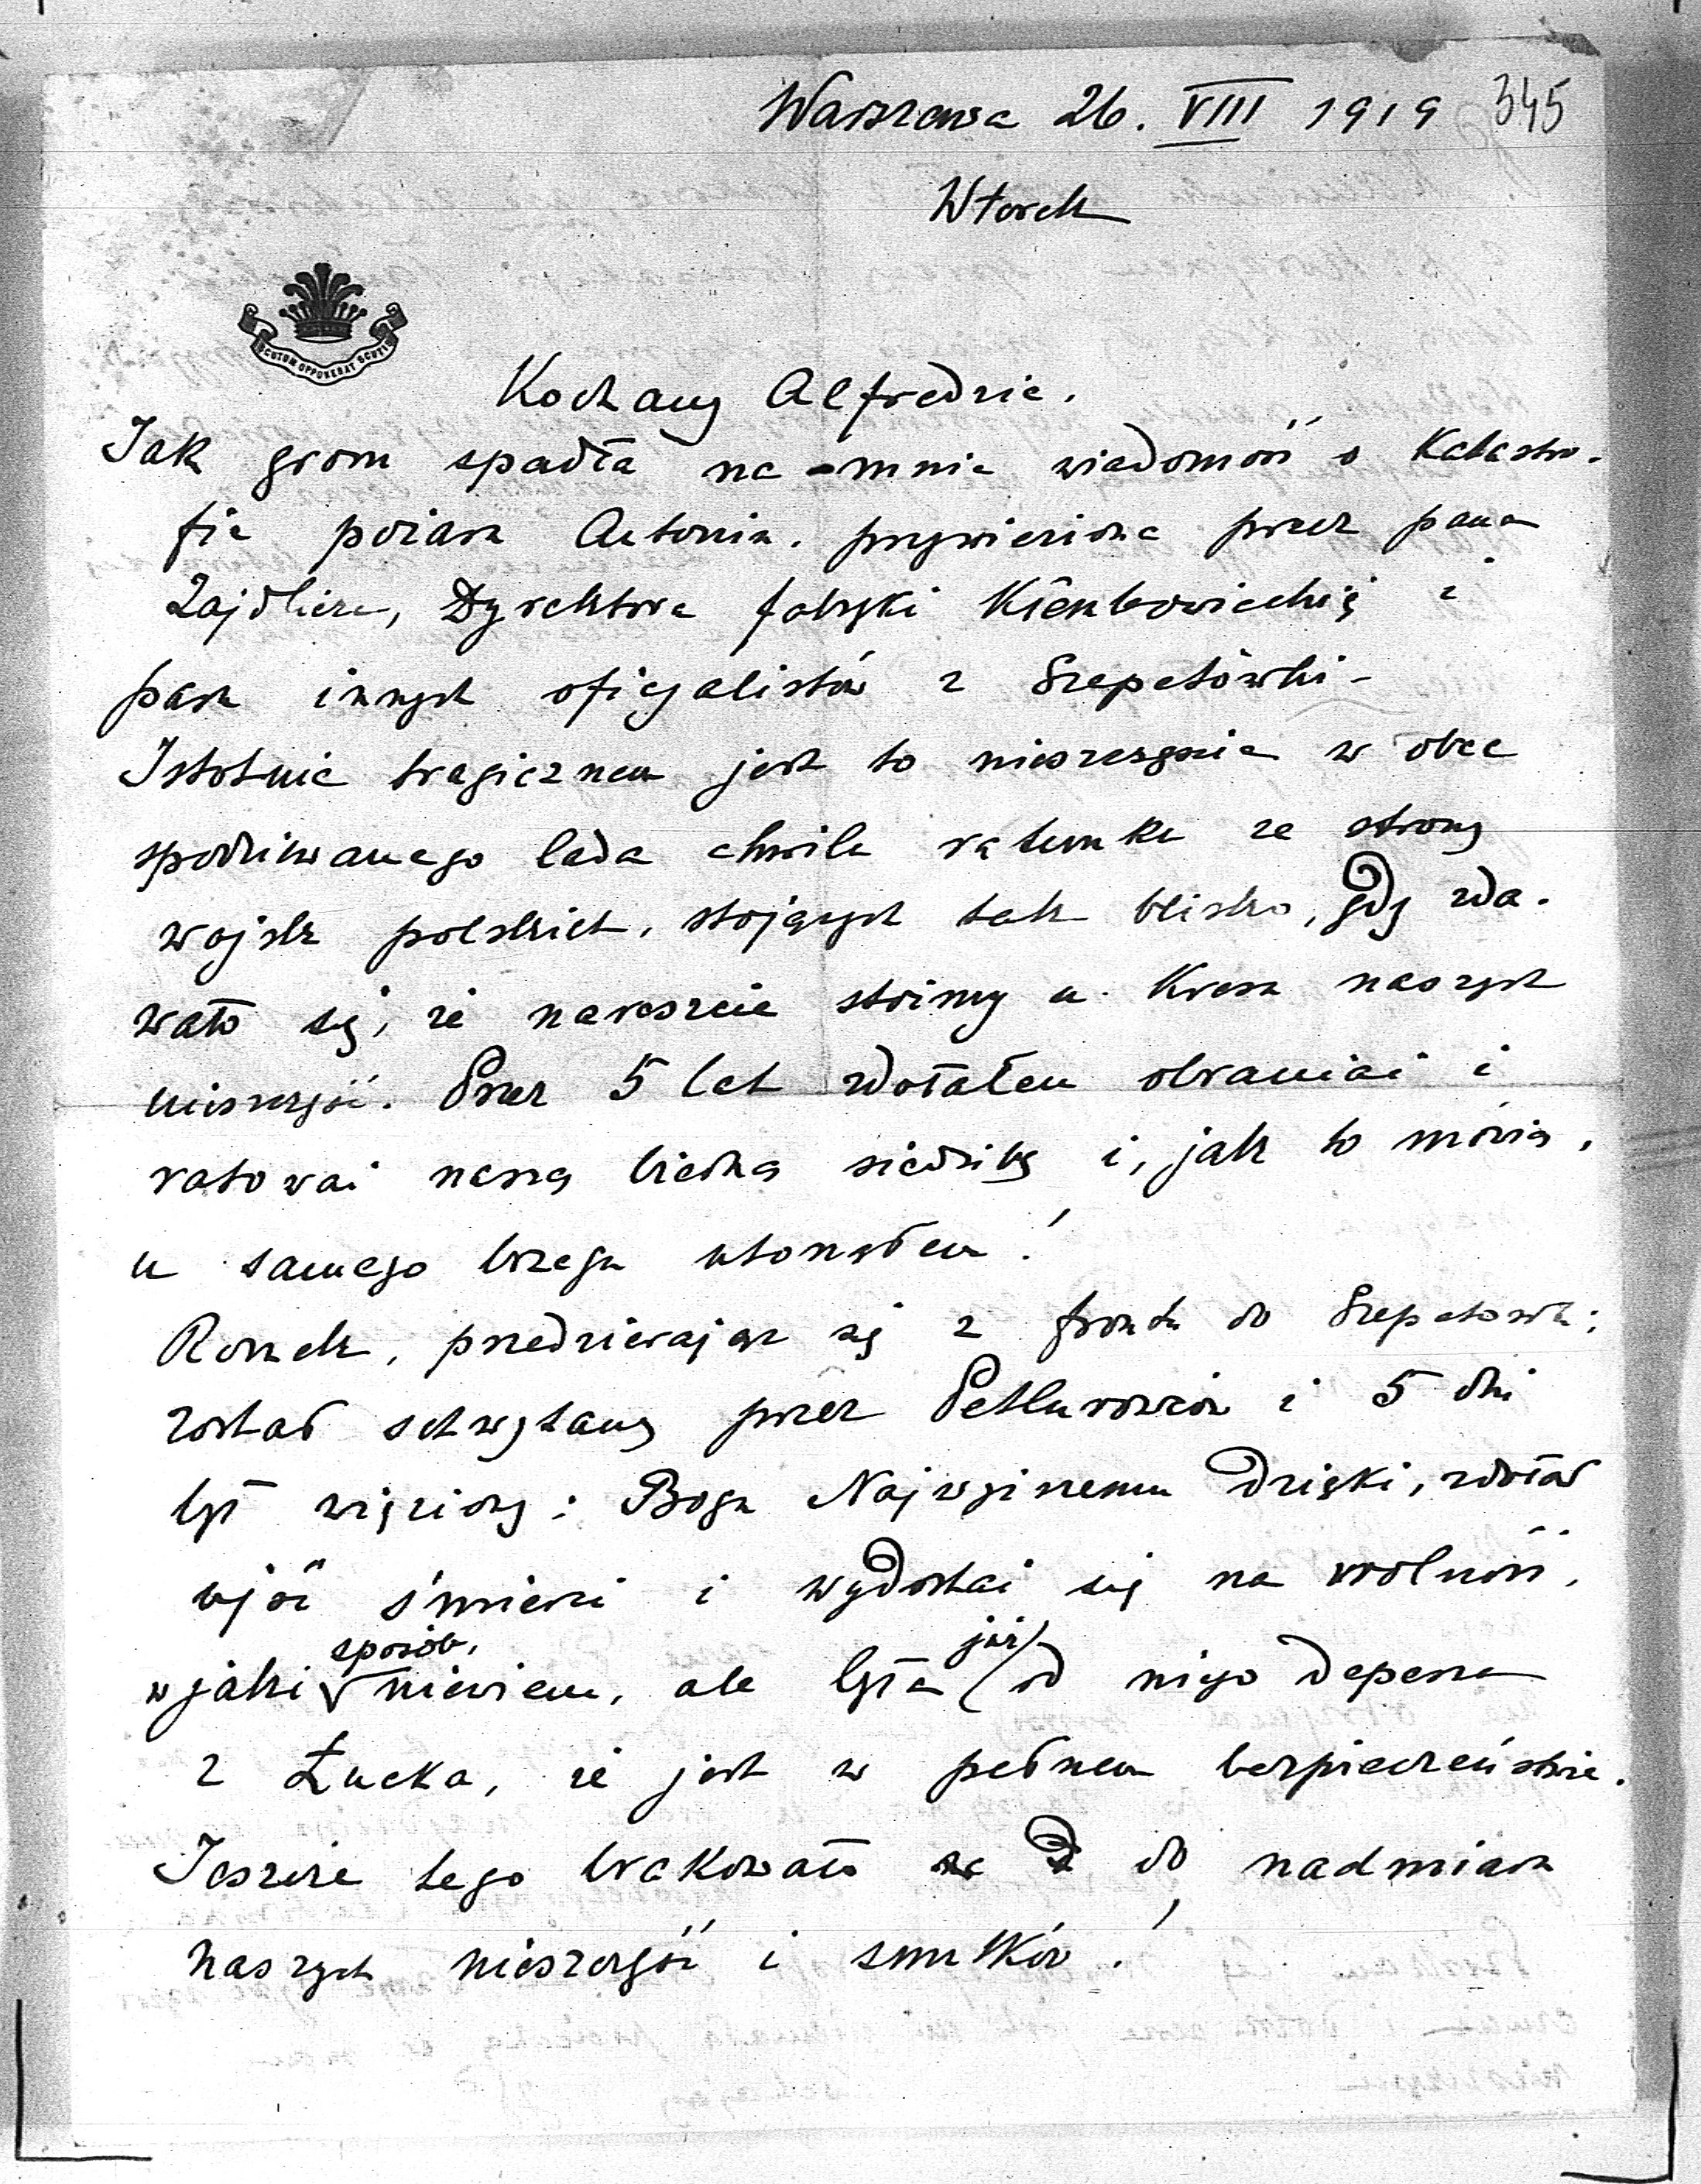 Warszawa 26. VIII 1919 345
Wtorek
SCUTUM OPPONEBAT SCUTIS
Kochany Alfredzie.
Jak grom spadła na mnie wiadomość o katastro-
fie pożaru Antonin. przywieziona przez pana
Zajdlicza, Dyrektora fabryki Klembowieckiej i
paru innych oficjalistów z Szepetówki -
Istotnie tragicznem jest to nieszczęście w obec
spodziewanego lada chwila ratunku ze strony
wojsk polskich, stojących tak blisko, gdy zda-
wało się, że nareszcie stoimy u kresu naszych
nieszczęść. Przez 5 lat zdołałem obraniać i
ratować naszą biedną siedzibę i, jak to mówią,
u samego brzegu utonąłem!
Romek, przedzierając się z frontu do Szepetówki
został schwytany przez Petlurowców i 5 dni
był więziony: Bogu Najwyższemu dzięki, zdołał
ujść śmierci i wydostać się na wolność,
w jaki sposób, niewiem, ale była już od niego depesza
z Łucka, że jest w pełnem bezpieczeństwie.
Jeszcze tego brakowało do nadmiaru
naszych nieszczęść i smutków!